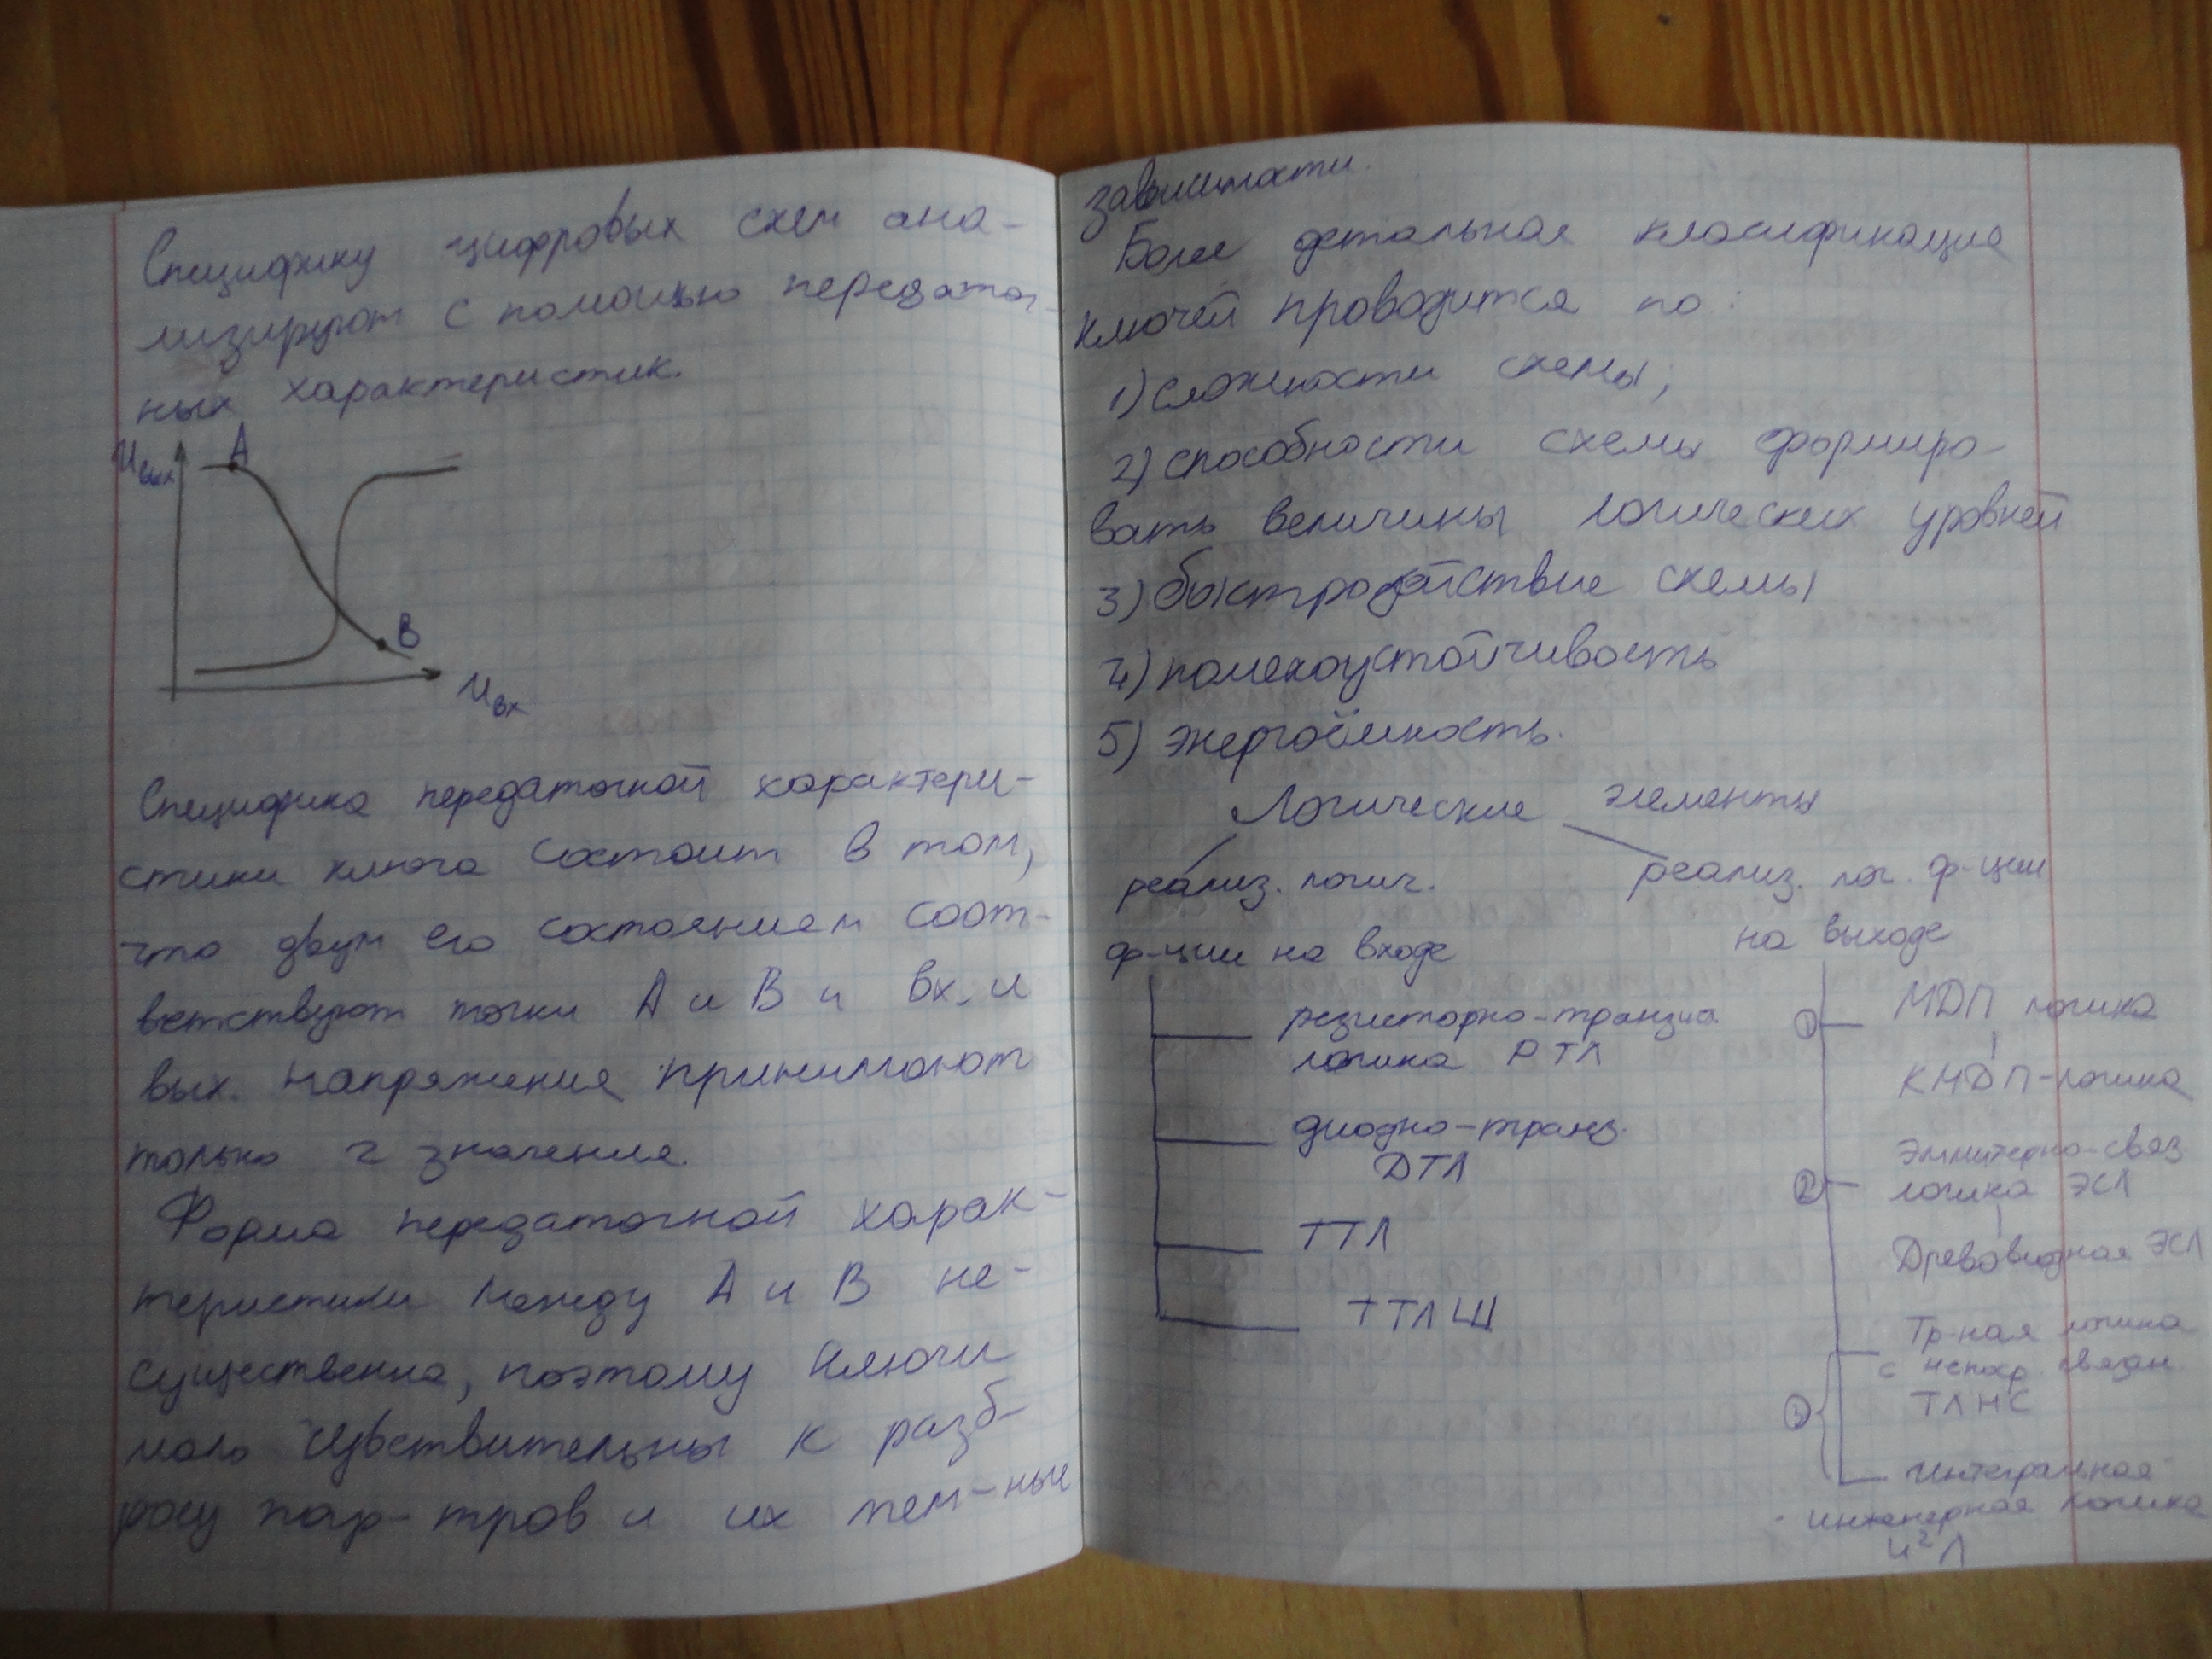 Специфику цифровых схем ана-
лизируют с помощью передаточ-
ных характеристик.
Uвых
A
B
Uвх
Специфика передаточной характери-
стики ключа состоит в том,
что двум его состояниям соот-
ветствуют точки А и В и вх. и
вых. напряжения принимают
только 2 значения.
Форма передаточной харак-
теристики между А и В не-
существенна, поэтому ключи
мало чувствительны к разб-
росу пар-тров и их тем-ные
зависимости.
Более детальная класификация
ключей проводится по:
1) сложности схемы;
2) способности схемы формиро-
вать величины логических уровней
3) быстродействие схемы
4) помехоустойчивость
5) энергоёмкость.
Логические элементы
реализ. логич.
ф-ции на входе
резисторно-транзис.
логика РТЛ
диодно-транз.
ДТЛ
ТТЛ
ТТЛШ
реализ. лог. ф-ции
на выходе
1 МДП логика
КМДП-логика
2 Эммитерно-связ.
логика ЭСЛ
Древовидная ЭСЛ
3 Тр-ная логика
с непоср. связн.
ТЛНС
Интегральная
инженерная логика
И²Л